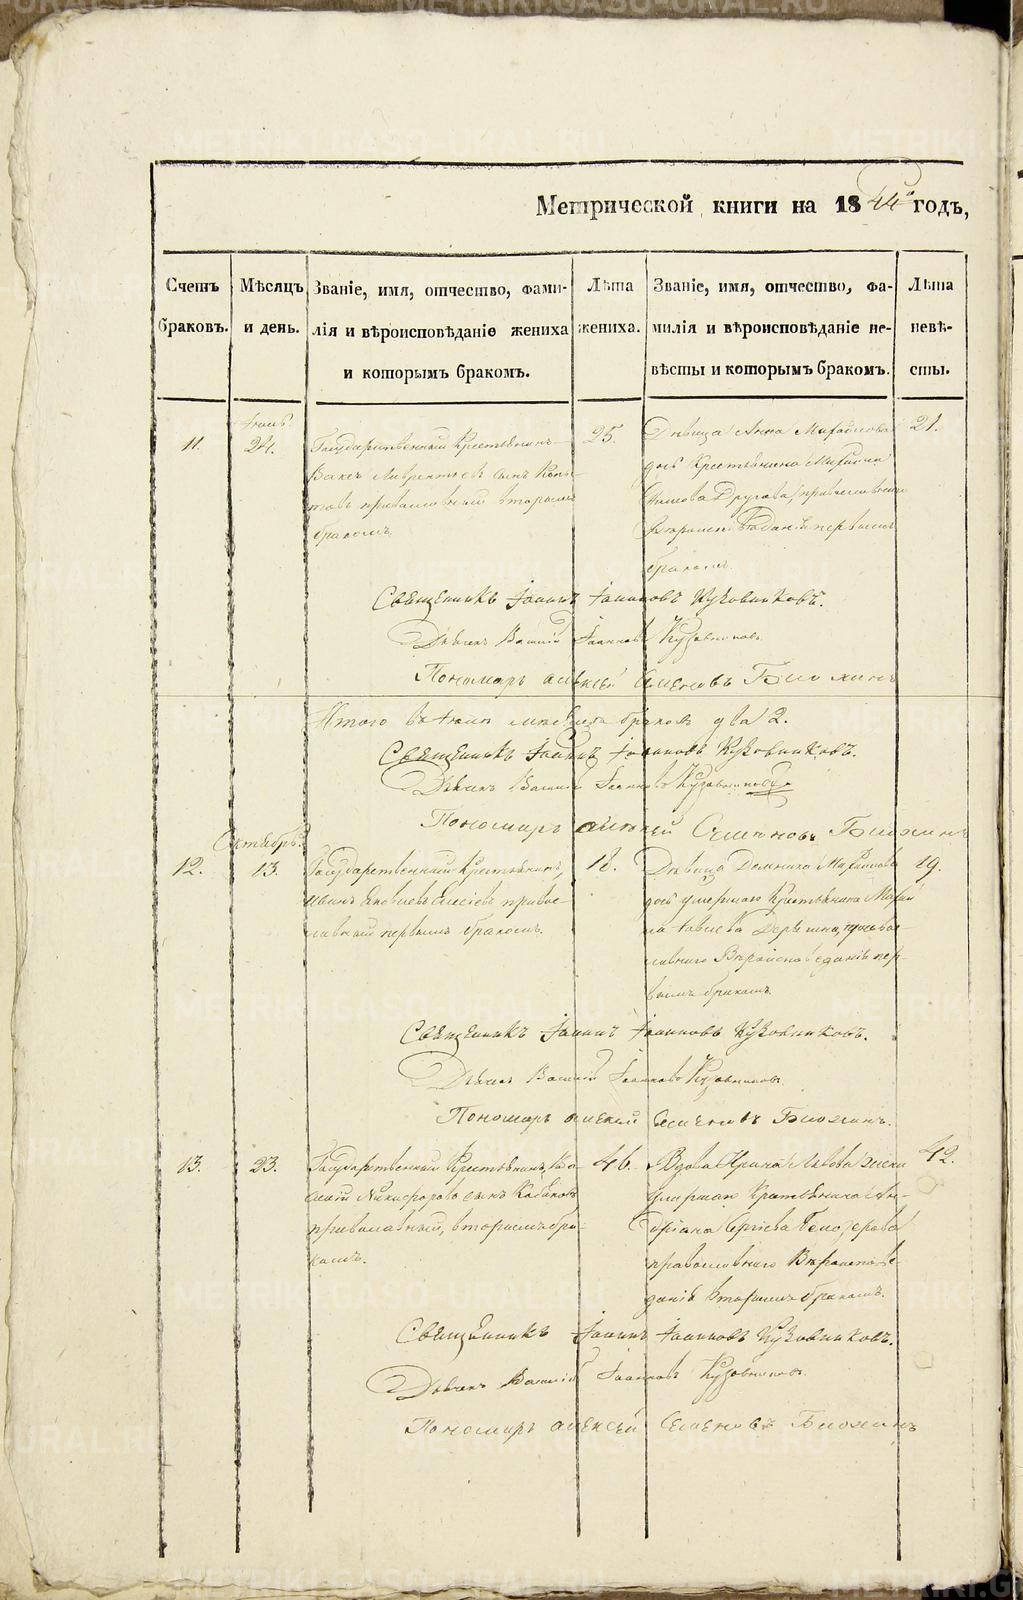 METRIKI.GASO-URAL.RU
Метрической книги на 1844 годъ,
Счетъ браковъ.
Мѣсяцъ и день.
Званіе, имя, отчество, фами-
лія и вѣроисповѣданіе жениха
и которымъ бракомъ.
Лѣта
жениха.
Званіе, имя, отчество, фа-
милія и вѣроисповѣданіе не-
вѣсты и которымъ бракомъ.
Лѣта
невѣ-
сты.
11.
24.
Государственный Крестьянинъ
сынъ
православный вторымъ
бракомъ.
25.
Дѣвица Анна Михайлова
дочь Крестьянина Михаила
православнаго
Вѣроисповѣданія первымъ
бракомъ.
21.
Священникъ Іоаннъ Іоанновъ Кузовниковъ.
Дьячекъ Василій Іоанновъ Кузовниковъ
Пономарь Алексѣй Семеновъ
Итого въ мѣсяцѣ браковъ два 2.
Священникъ Іоаннъ Іоанновъ Кузовниковъ.
Дьячекъ Василій Іоанновъ Кузовниковъ
Пономарь Алексѣй Семеновъ
Октябрь
12.
13.
Государственный Крестьянинъ,
Иванъ Яковлевъ Елисѣевъ право-
славный первымъ бракомъ.
18.
Дѣвица Домника Михайлова
дочь умершаго Крестьянина Михаи-
ла правос-
лавнаго Вѣроисповѣданія пер-
вымъ бракомъ.
19.
Священникъ Іоаннъ Іоанновъ Кузовниковъ.
Дьячекъ Василій Іоанновъ Кузовниковъ.
Пономарь Алексѣй Семеновъ
13.
23.
Государственный Крестьянинъ, Ва-
силій Никифоровъ сынъ
православный, вторымъ бра-
комъ.
46.
Вдова Ирина Львова жена
умершаго Крестьянина Ан-
дріана Сергіева Бѣлозерова
православнаго Вѣроисповѣ-
данія вторымъ бракомъ.
42.
Священникъ Іоаннъ Іоанновъ Кузовниковъ.
Дьячекъ Василій Іоанновъ Кузовниковъ.
Пономарь Алексѣй Семеновъ